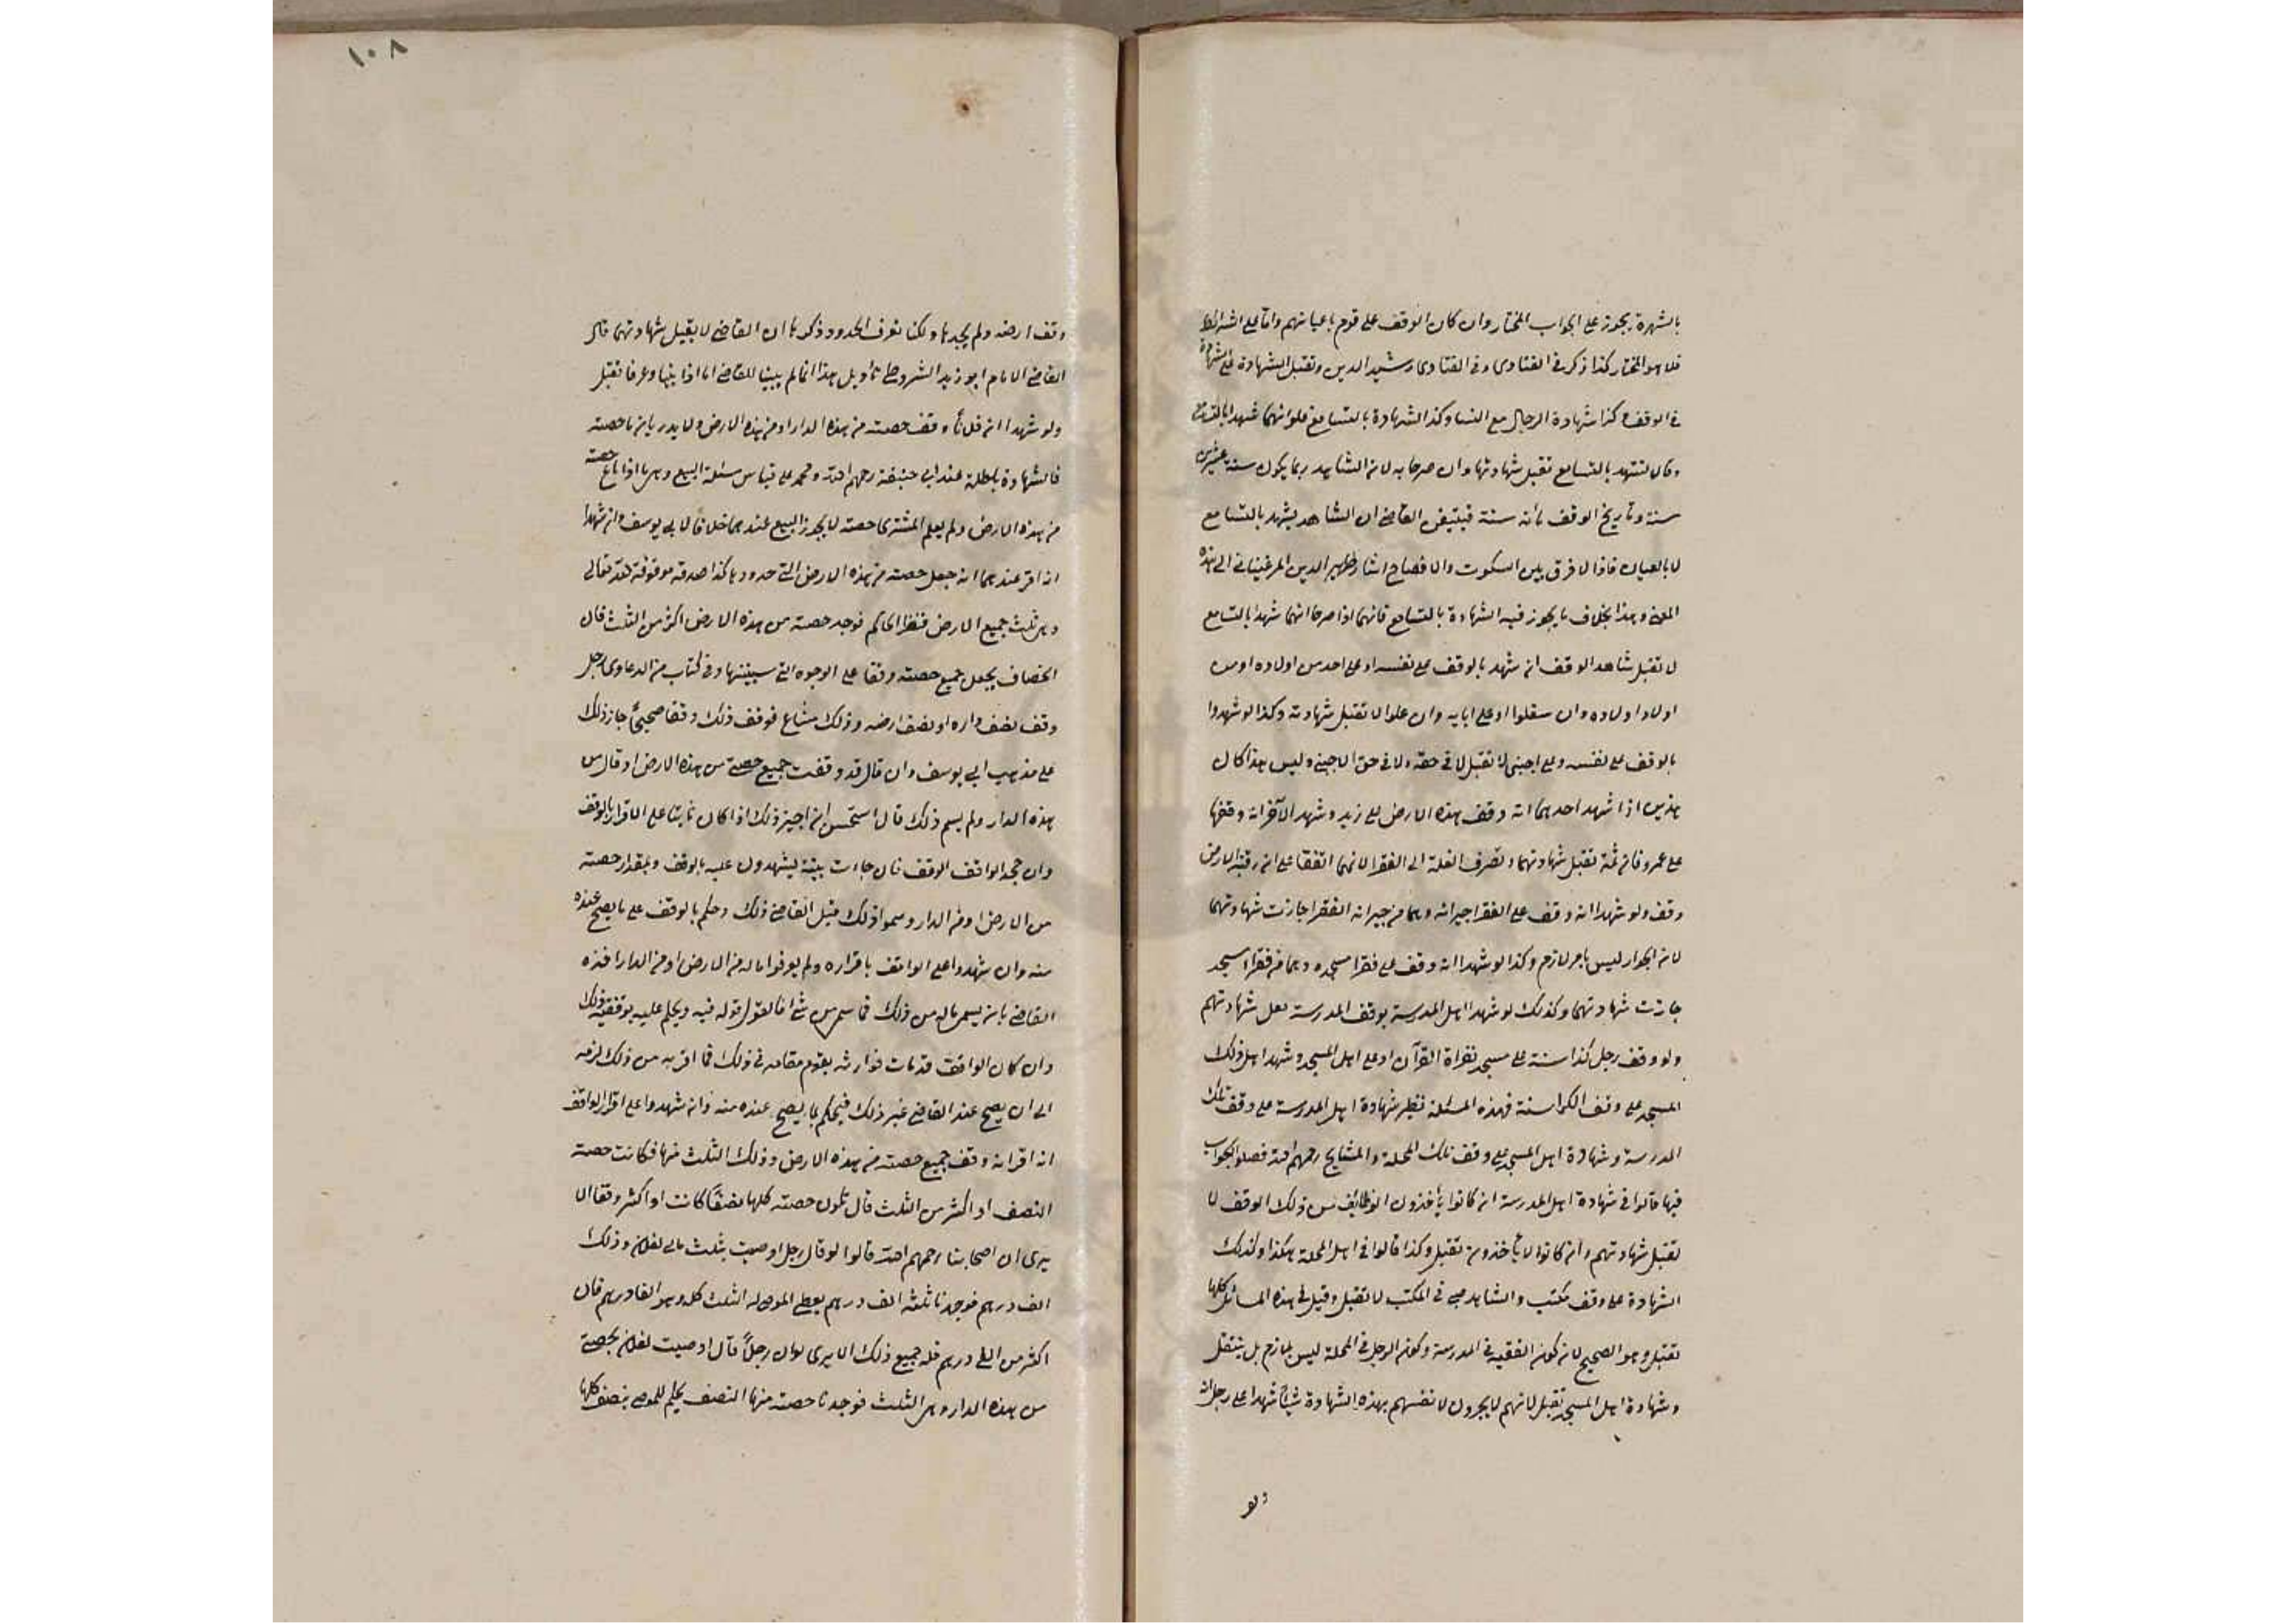 بالشهرة يجوز على الجواب المختار وان كان الوقف على قوم باعيانهم واما على الشرائط
فلا هو المختار كذا ذكر في الفتاوى وفى الفتاوى رشيد الدين وتقبل الشهادة على الشهادة
في الوقف وكذا شهادة الرجال مع النسا وكذا الشهادة بالتسامع فلو انهما شهدا بالتسامع
وقالا نشهد بالتسامع تقبل شهادتهما وان صرحا به لان الشاهد ربما يكون سنه عشرين
سنة وتاريخ الوقف مأة سنة فيتيقن القاضى ان الشاهد يشهد بالتسامع
لا بالعيان فاذا لا فرق بين السكوت والافصاح اشار ظهير الدين المرغينانى الى هذه
المعنى وهذا بخلاف ما يجوز فيه الشهادة بالتسامع فانهما اذا صرحا انهما شهدا بالتسامع
لا تقبل شاهد الوقف ان شهد بالوقف على نفسه او على احد من اولاده او من
اولاد اولاده وان سفلوا او على ابايه وان علوا لا تقبل شهادته وكذا لو شهدوا
بالوقف على نفسه وعلى اجنبى لا تقبل لا في حقه ولا في حق الاجنبى وليس هذا كان
هذين اذا شهد احدهما انه وقف هذه الارض على زيد وشهد الآخر انه وقفها
على عمرو فان ثمة تقبل شهادتهما وتصرف الغلة الى الفقرا لانهما اتفقا على ان رقبة الارض
وقف ولو شهدا انه وقف على الفقرا جيرانه وهما من جيرانه الفقرا جازت شهادتهما
لان الجوار ليس بامر لازم وكذا لو شهدا انه وقف على فقرا مسجده وهما من فقرا المسجد
جازت شهادتهما وكذلك لو شهدا اهل المدرسة بوقف المدرسة تقبل شهادتهم
ولو وقف رجل كذاسته على مسجد لقراة القرآن او على اهل المسجد وشهد اهل ذلك
المسجد على وقف الكراسنة فهذه المسئلة نظير شهادة اهل المدرسة على وقف تلك
المدرسة وشهادة اهل المسجد على وقف تلك المحلة والمشايخ رحمهم الله فصلوا الجواب
فيها قالوا في شهادة اهل المدرسة ان كانوا يأخذون الوظائف من ذلك الوقف لا
تقبل شهادتهم وان كانوا لا يأخذون تقبل وكذا قالوا في اهل المحلة هكذا وكذلك
الشهادة على وقف مكتب والشاهد صبي في المكتب لا تقبل وقيل في هذه المسائل كلها
تقبل وهو الصحيح لان كون الفقيه في المدرسة وكون الرجل في المحلة ليس بلازم بل ينتقل
وشهادة اهل المسجد تقبل لانهم لا يجرون لانفسهم بهذه الشهادة شيئا شهدا على رجل انه
وقف
١٠٨
وقف ارضه ولم يحدها ولكنا نعرف الحدود ذكرنا ان القاضى لا يقبل شهادتهما قال
القاضى الامام ابو زيد الشروطى تأويل هذا انما لم يبينا للقاضى اما اذا بينا وعرفا تقبل
ولو شهدا ان فلانا وقف حصته من هذه الدار او من هذه الارض ولا يدريان ما حصته
فالشهادة باطلة عند ابى حنيفة رحمهم الله ومحمد على قياس مسئلة البيع وهى ما اذا باع حصته
من هذه الارض ولم يعلم المشترى حصته لا يجوز البيع عندهما خلافا لابي يوسف وان شهدا
انه اقر عندهما انه جعل حصته من هذه الارض التى حدودها كذا صدقة موقوفة لله تعالى
وهى ثلث جميع الارض فنظر الحاكم فوجد حصته من هذه الارض اكثر من الثلث قال
الخصاف يجعل جميع حصته وقفا على الوجوه التى سبيتها وفى كتاب من الدعاوى رجل
وقف نصف داره او نصف ارضه وذلك مشاع فوقف ذلك وقفا صحيحاً جاز ذلك
على مذهب ابى يوسف وان قال قد وقفت جميع حصتى من هذه الارض او قال من
هذه الدار ولم يسم ذلك قال استحسن ان اجيز ذلك اذا كان ثابتا على الاقرار بالوقف
وان جحد الواقف الوقف فان جاءت بينة يشهدون عليه بالوقف وبمقدار حصته
من الارض او من الدار وسموا ذلك قبل القاضى ذلك وحكم بالوقف على ما يصح عنده
منه وان شهدوا على الواقف باقراره ولم يوفوا ماله من الارض او من الدار اخذه
القاضى بان يسمى ماله من ذلك فما سمى من شئ فالقول قوله فيه ويحكم عليه بوقفية ذلك
وان كان الواقف قد مات فوارثه يقوم مقامه في ذلك فما اقر به من ذلك لزمه
الى ان يصح عند القاضى غير ذلك فيحكم بما يصح عنده منه وان شهدوا على اقرار الواقف
انه اقر انه وقف جميع حصته من هذه الارض وذلك الثلث منها فكانت حصته
النصف او اكثر من الثلث قال تكون حصته كلها نصفاً كانت او اكثر وقفا الا
يرى ان اصحابنا رحمهم الله قالوا لو قال رجل اوصيت بثلث مالى لفلان وذلك
الف درهم فوجدنا ثلثه الف درهم يعطى الموصى له الثلث كله وهو الفا درهم قال
اكثر من الفى درهم فله جميع ذلك الا يرى لو ان رجلاً قال اوصيت لفلان بحصتى
من هذه الدار وهى الثلث فوجدنا حصته منها النصف يحكم للموصى بنصف كلها